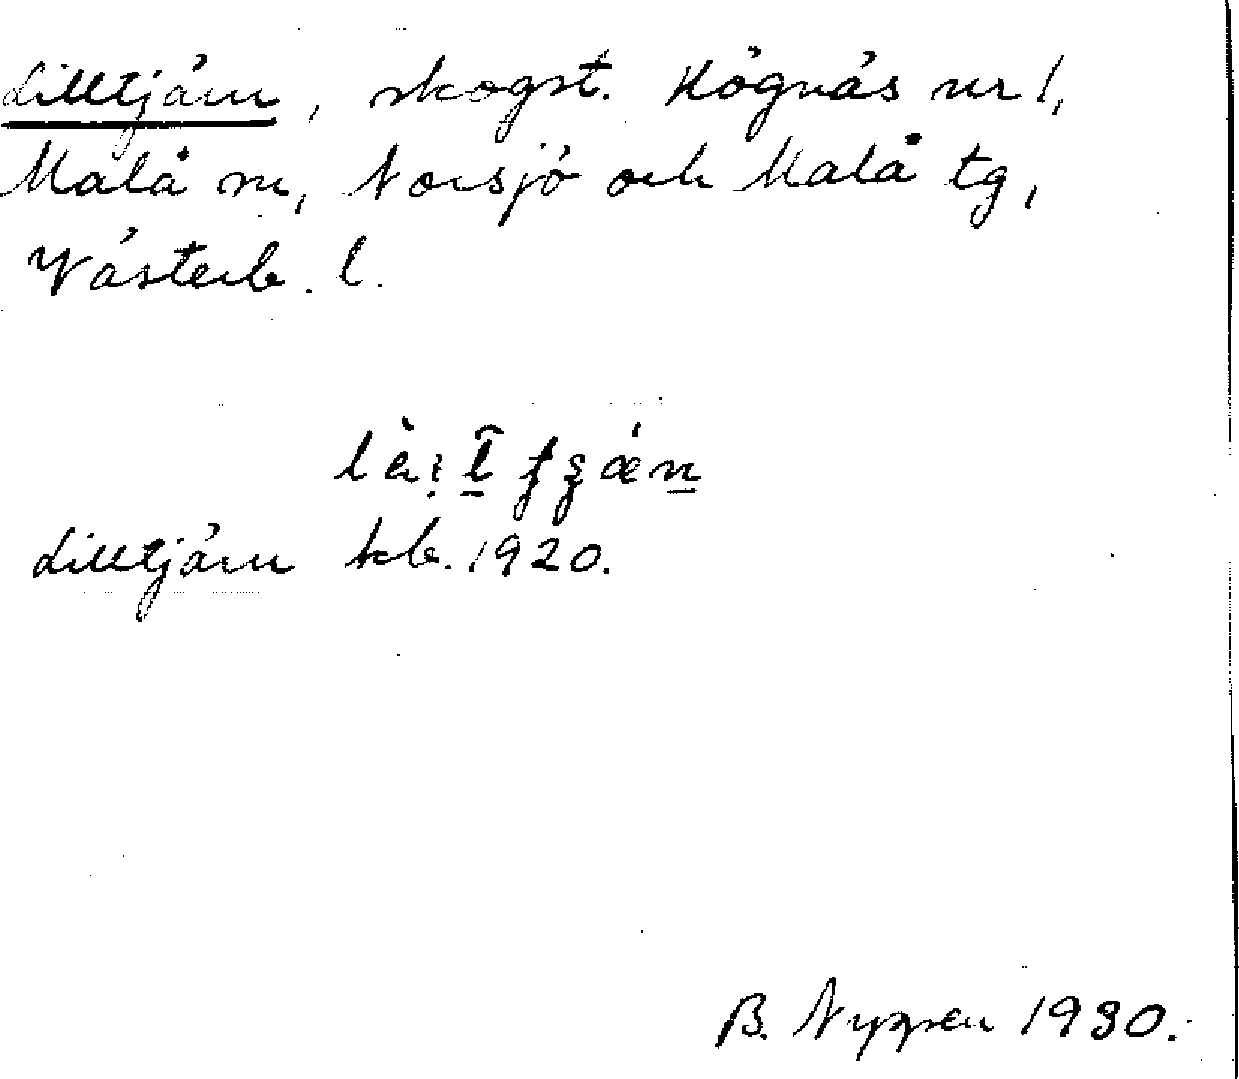 Lilltjärn, skogst. Högnäs nr 1,
Malå sn, Norsjö och Malå tg,
Västerb. l.
Lilltjärn kb. 1920.
B. Nygren 1930.